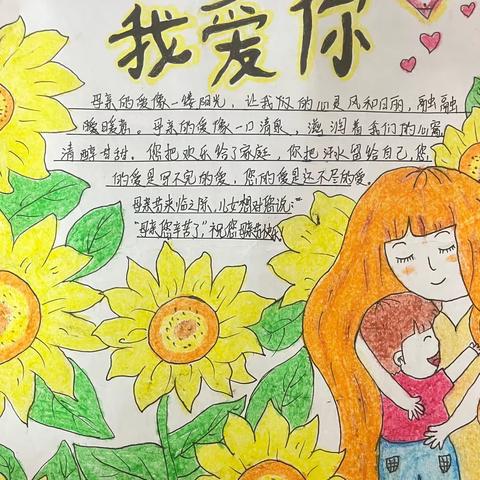 我爱你
母亲的爱像一缕阳光，让我们的心灵风和日丽，融融
暖暖着。母亲的爱像一口清泉，滋润着我们的心窝
清醇甘甜。您把欢乐给了家庭，你把汗水留给自己，您
的爱是写不完的爱，您的爱是还不尽的爱。
母亲节来临之际，儿女想对您说：“
“母亲您辛苦了，”祝您母亲节快乐